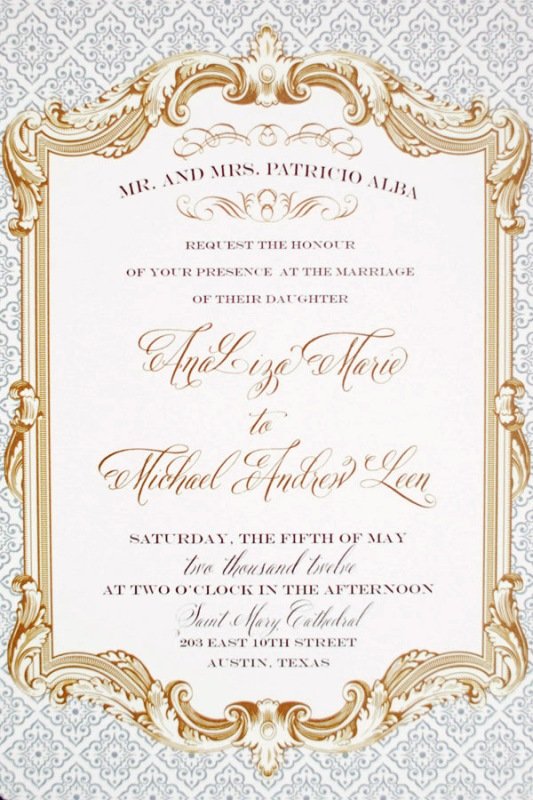 MR. AND MRS. PATRICIO ALBA
REQUEST THE HONOUR
OF YOUR PRESENCE AT THE MARRIAGE
OF THEIR DAUGHTER
AnaLiza Marie
to
Michael Andrew Leen
SATURDAY, THE FIFTH OF MAY
two thousand twelve
AT TWO O'CLOCK IN THE AFTERNOON
Saint Mary Cathedral
203 EAST 10TH STREET
AUSTIN, TEXAS